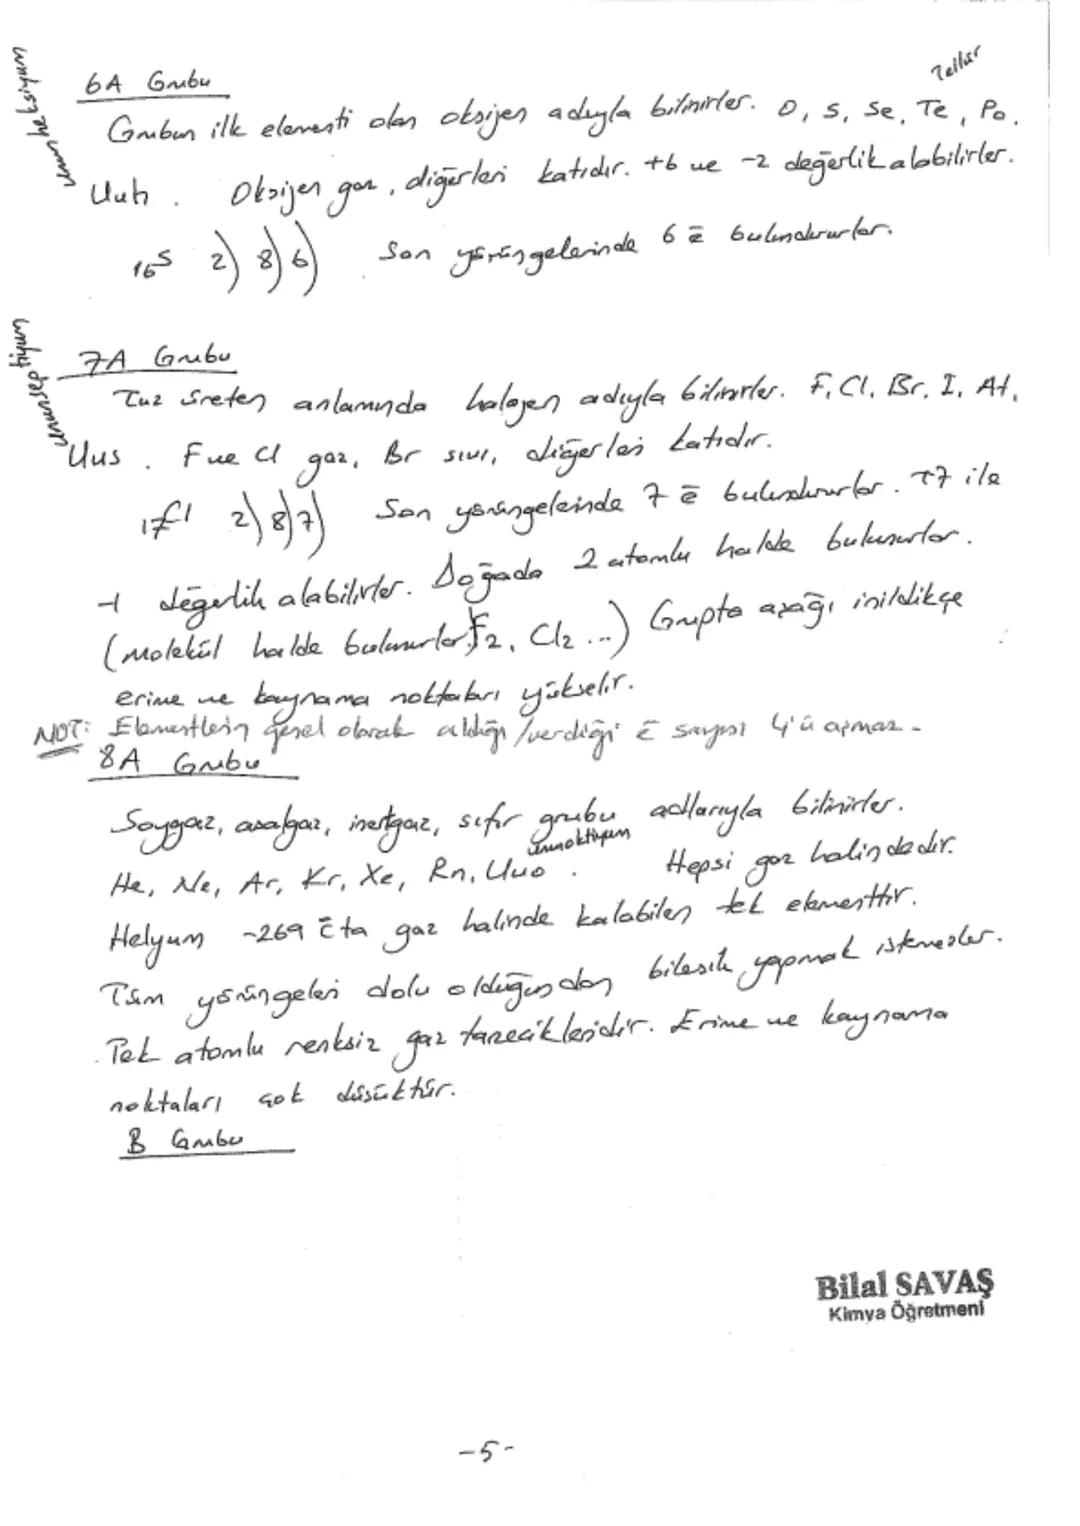 Tellür
ununheksiyum
6A Grubu
Grubun ilk elementi olan oksijen adıyla bilinirler. O, S, Se, Te, Po,
Uuh. Oksijen gaz, diğerleri katıdır. +6 ve -2 değerlik alabilirler.
16S 2) 8) 6) Son yörüngelerinde 6 ē bulundururlar.
ununseptiyum
7A Grubu
Tuz üreten anlamında halojen adıyla bilinirler. F, Cl, Br, I, At,
Uus. F ve Cl gaz, Br sıvı, diğerleri katıdır.
17Cl 2) 8) 7) Son yörüngelerinde 7 ē bulundururlar. +7 ile
-1 değerlik alabilirler. Doğada 2 atomlu halde bulunurlar.
(molekül halde bulunurlar. F2, Cl2 ...) Grupta aşağı inildikçe
erime ve kaynama noktaları yükselir.
NOT: Elementlerin genel olarak aldığı/verdiği ē sayısı 4'ü aşmaz.
8A Grubu
Soygaz, asalgaz, inertgaz, sıfır grubu adlarıyla bilinirler.
ununoktiyum
He, Ne, Ar, Kr, Xe, Rn, Uuo. Hepsi gaz halindedir.
Helyum -269 °C ta gaz halinde kalabilen tek elementtir.
Tüm yörüngeleri dolu olduğundan bileşik yapmak istemezler.
Tek atomlu renksiz gaz tanecikleridir. Erime ve kaynama
noktaları çok düşüktür.
B Grubu
Bilal SAVAŞ
Kimya Öğretmeni
-5-